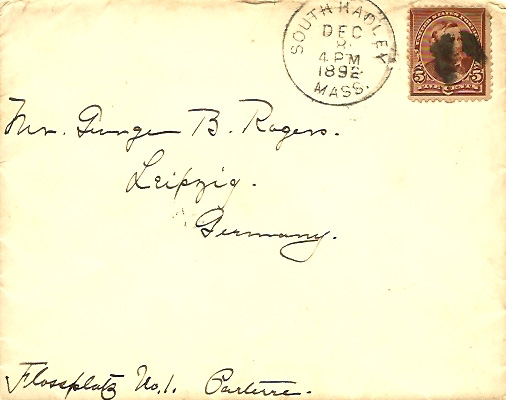 SOUTH HADLEY
DEC
8
4 PM
1892
MASS.
UNITED STATES POSTAGE
5 5
Mr. George B. Rogers.
Leipzig.
Germany.
Flossplatz No. 1. Parterre.